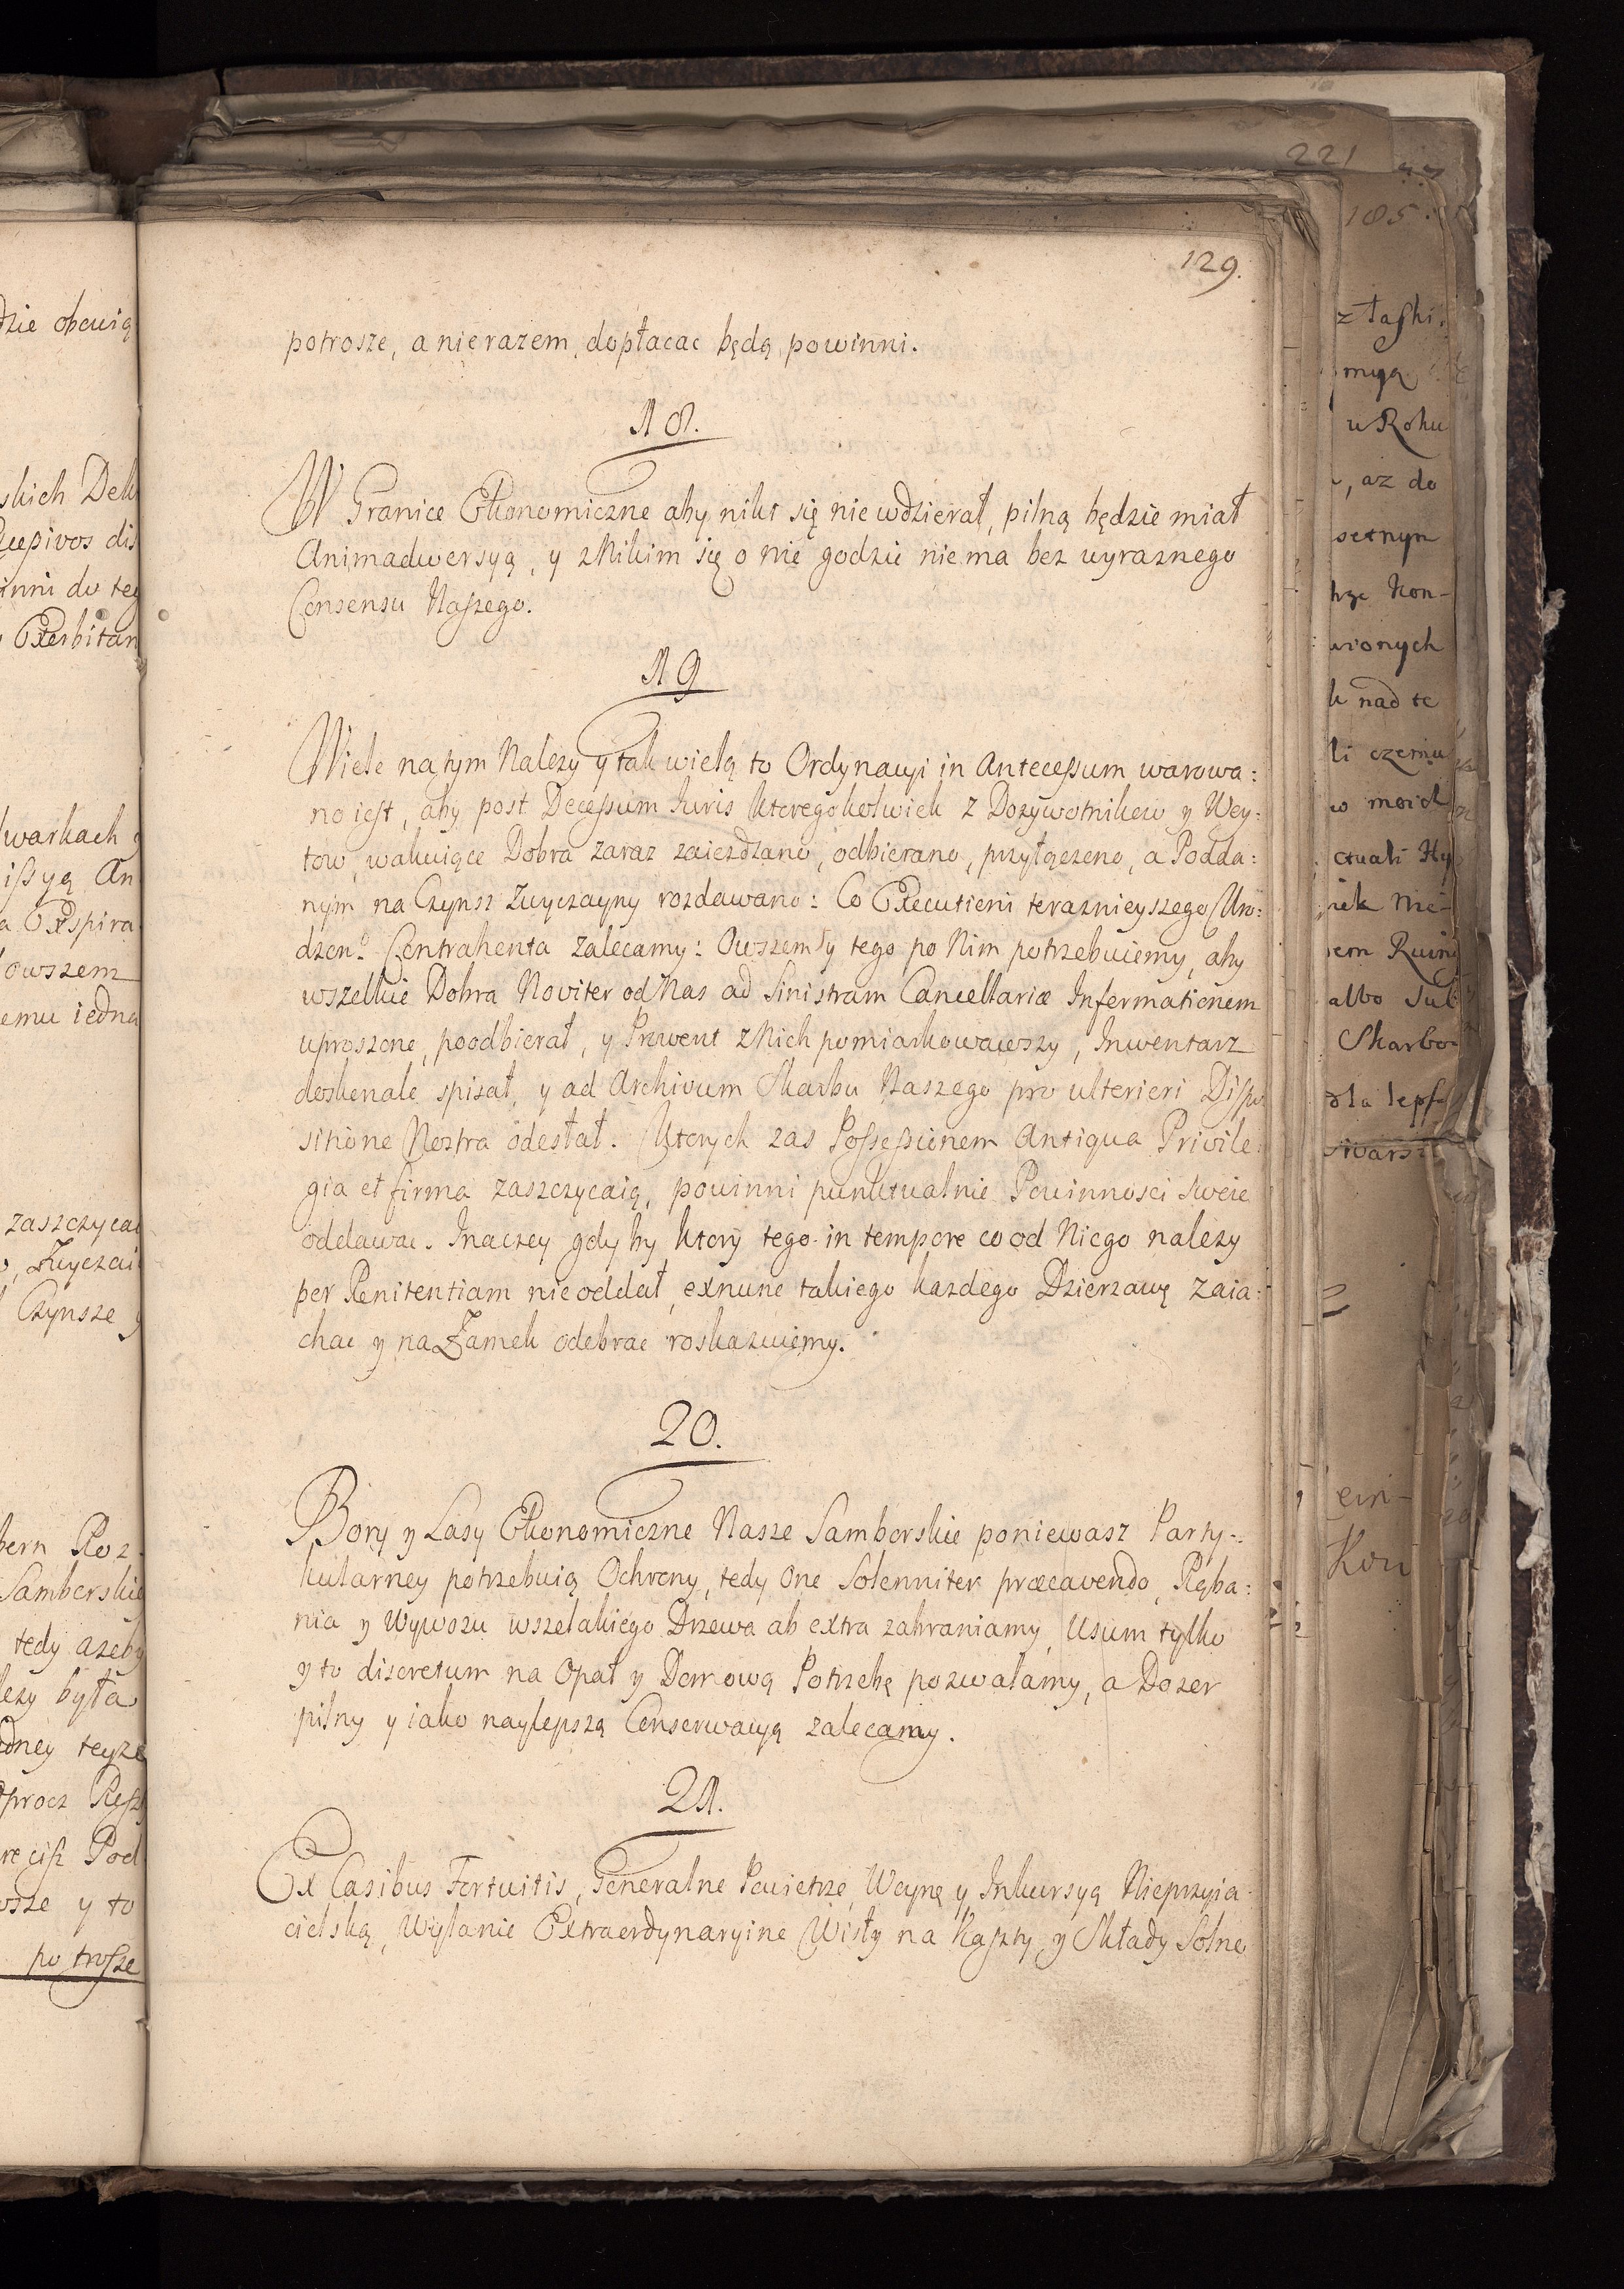 221
185.
129.
potrosze, a nie razem, dopłacac będą powinni.
18.
W Granice Ekonomiczne aby nikt się nie wdzierał, pilną będzie miał
Animadwersyą, y z Nikim się o nie godzic nie ma bez wyraznego
Consensu Naszego.
19
Wiele na tym Nalezy y tak wielą to Ordynacyi in Antecessum warowa:
no iest, aby post Decessum Iuris ktoregokolwiek z Dozywotnikow y Woy:
tow, wakuiące Dobra zaraz zaiezdzano, odbierano, przyłączono, a Podda:
nym na Czynsz Zwyczayny rozdawano: Co Executioni teraznieyszego Uro:
dzon.º Contrahenta Zalecamy: Owszem y tego po Nim potrzebuiemy, aby
wszelkie Dobra Noviter od Nas ad Sinistram Cancellariæ Informationem
uproszone, poodbierał, y Prowent z Nich pomiarkowawszy, Inwentarz
doskonale spisał, y ad Archivum Skarbu Naszego pro ulteriori Dispo
sitione Nostra odesłał. Ktorych zas Possessionem Antiqua Privile:
gia et firma zaszczycaią, powinni punktualnie Powinnosci swoie
oddawac. Inaczey gdyby ktory tego in tempore co od Niego nalezy
per Renitentiam nie oddał, exnunc takiego kazdego Dzierzawę zaia:
chac y na Zamek odebrac roskazuiemy.
20.
Bory y Lasy Ekonomiczne Nasze Samborskie poniewasz Party:
kularney potrzebuią Ochrony, tedy One Solenniter præcavendo, Rąba:
nia y Wywozu wszelakiego Drzewa ab extra zabraniamy, Usum tylko
y to discretum na Opał y Domową Potrzebę pozwalamy, a Dozor
pilny y iako naylepszą Conserwacyą zalecamy.
21.
Ex Casibus Fortuitis, Generalne Powietrze, Woynę y Inkursyą Nieprzyia
cielską, Wylanie Extraordynaryine Wisły na Kaszty y Składy Solne